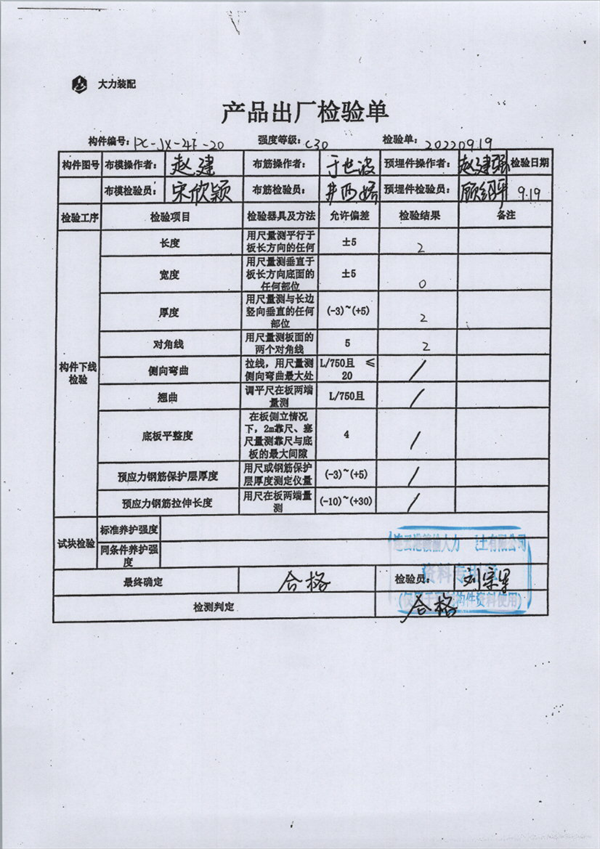 大力装配
产品出厂检验单
构件编号: PC-JX-4F-20 强度等级: C30 检验单: 20220919
构件图号 布模操作者: 赵建 布筋操作者: 于世波 预埋件操作者: 赵建强 检验日期
布模检验员: 宋欣颖 布筋检验员: 预埋件检验员: 9.19
检验工序 检验项目 检验器具及方法 允许偏差 检验结果 备注
构件下线检验
长度 用尺量测平行于板长方向的任何 ±5 2
宽度 用尺量测垂直于板长方向底面的任何部位 ±5 0
厚度 用尺量测与长边竖向垂直的任何部位 (-3)~(+5) 2
对角线 用尺量测板面的两个对角线 5 2
侧向弯曲 拉线，用尺量测侧向弯曲最大处 L/750且 ≤20 /
翘曲 调平尺在板两端量测 L/750且 /
底板平整度 在板侧立情况下，2m靠尺、塞尺量测靠尺与底板的最大间隙 4 /
预应力钢筋保护层厚度 用尺或钢筋保护层厚度测定仪量 (-3)~(+5) /
预应力钢筋拉伸长度 用尺在板两端量测 (-10)~(+30) /
试块检验 标准养护强度
同条件养护强度
最终确定 合格 检验员:
检测判定 合格